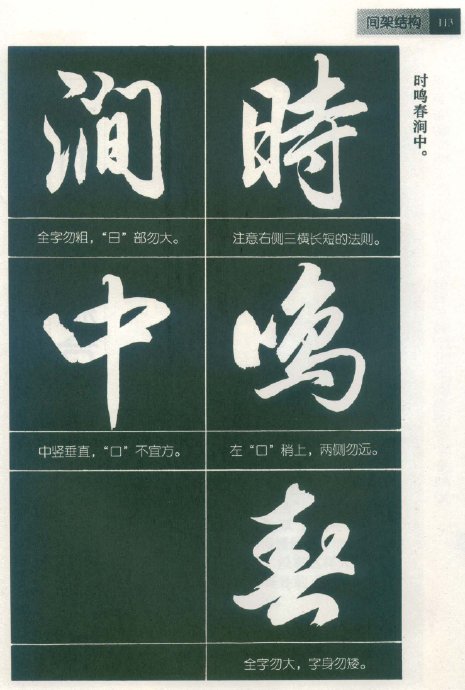 间架结构 113
时鸣春涧中。
時
注意右侧三横长短的法则。
鸣
左“口”稍上，两侧勿远。
春
全字勿大，字身勿矮。
涧
全字勿粗，“日”部勿大。
中
中竖垂直，“口”不宜方。